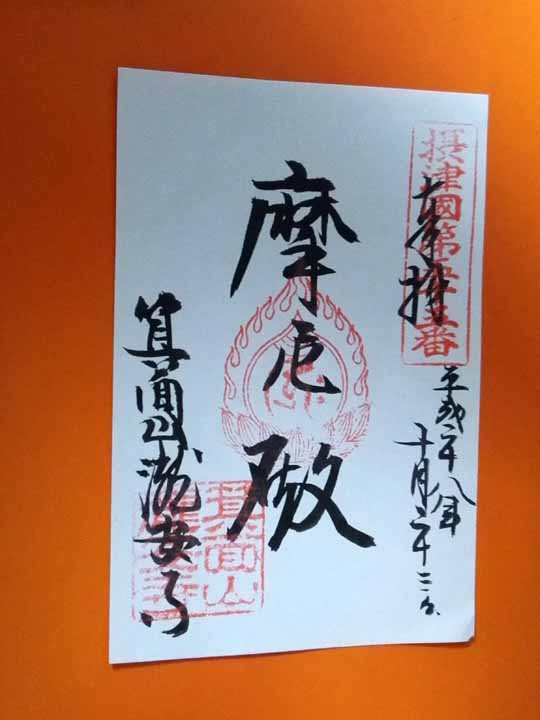 摂津國第五十五番
奉拝
平成二十八年
十月二十三日
摩尼殿
箕面山瀧安寺
箕面山